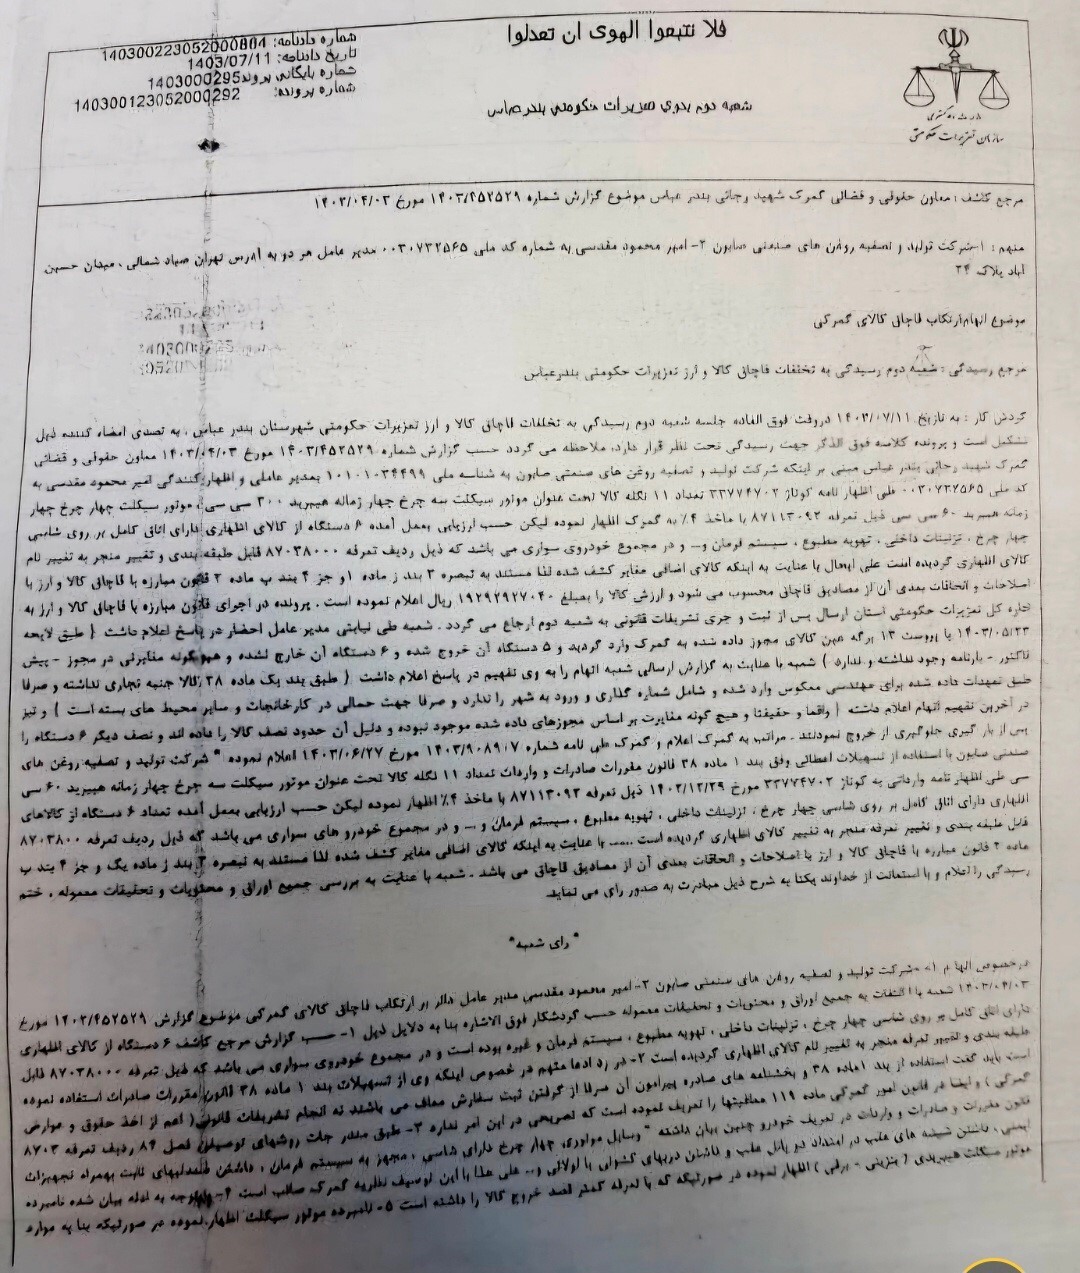 فلا تتبعوا الهوی ان تعدلوا
شماره دادنامه: 140300223052000884
تاریخ دادنامه: 1403/07/11
شماره بایگانی پرونده: 1403000295
شماره پرونده: 140300123052000292
سازمان تعزیرات حکومتی
شعبه دوم بدوی تعزیرات حکومتی بندرعباس
مرجع کاشف : معاون حقوقی و قضائی گمرک شهید رجائی بندر عباس موضوع گزارش شماره ۱۴۰۳/۴۵۲۵۲۹ مورخ ۱۴۰۳/۰۴/۰۳
متهم : ۱-شرکت تولید و تصفیه روغن های صنعتی صابون ۲- امیر محمود مقدسی به شماره کد ملی ۰۰۳۰۷۳۲۵۶۵ مدیر عامل هر دو به آدرس تهران صیاد شمالی ، میدان حسین
آباد پلاک ۲۴
موضوع اتهام:ارتکاب قاچاق کالای گمرکی
مرجع رسیدگی : شعبه دوم رسیدگی به تخلفات قاچاق کالا و ارز تعزیرات حکومتی بندرعباس
گردش کار : به تاریخ ۱۴۰۳/۰۷/۱۱ در وقت فوق العاده جلسه شعبه دوم رسیدگی به تخلفات قاچاق کالا و ارز تعزیرات حکومتی شهرستان بندر عباس ، به تصدی امضاء کننده ذیل
تشکیل است و پرونده کلاسه فوق الذکر جهت رسیدگی تحت نظر قرار دارد، ملاحظه می گردد حسب گزارش شماره ۱۴۰۳/۴۵۲۵۲۹ مورخ ۱۴۰۳/۰۴/۰۳ معاون حقوقی و قضائی
گمرک شهید رجائی بندر عباس مبنی بر اینکه شرکت تولید و تصفیه روغن های صنعتی صابون به شناسه ملی ۱۰۱۰۱۰۳۴۴۹۹ بمدیر عاملی و اظهارکنندگی امیر محمود مقدسی به
کد ملی ۰۰۳۰۷۳۲۵۶۵ طی اظهار نامه کوتاژ ۳۳۷۷۴۷۰۲ تعداد ۱۱ نگله کالا تحت عنوان موتور سیکلت سه چرخ چهار زمانه هیبرید ۳۰۰ سی سی ، موتور سیکلت چهار چرخ چهار
زمانه هیبرید ۶۰ سی سی ذیل تعرفه ۸۷۱۱۳۰۹۲ با ماخذ ۴٪ به گمرک اظهار نموده لیکن حسب ارزیابی بعمل آمده ۶ دستگاه از کالای اظهاری دارای اتاق کامل بر روی شاسی
چهار چرخ ، تزئینات داخلی ، تهویه مطبوع ، سیستم فرمان و... و در مجموع خودروی سواری می باشد که ذیل ردیف تعرفه ۸۷۰۳۸۰۰۰ قابل طبقه بندی و تغییر منجر به تغییر نام
کالای اظهاری گردیده است علی ایحال با عنایت به اینکه کالای اضافی مغایر کشف شده لذا مستند به تبصره ۳ بند ز ماده ۱و جز ۴ بند پ ماده ۲ قانون مبارزه با قاچاق کالا و ارز با
اصلاحات و الحاقات بعدی آن از مصادیق قاچاق محسوب می شود و ارزش کالا را بمبلغ ۱۹۲۹۲۹۲۷۰۴۰ ریال اعلام نموده است . پرونده در اجرای قانون مبارزه با قاچاق کالا و ارز به
اداره کل تعزیرات حکومتی استان ارسال پس از ثبت و جری تشریفات قانونی به شعبه دوم ارجاع می گردد . شعبه طی نیابتی مدیر عامل احضار در پاسخ اعلام داشت ( طبق لایحه
۱۴۰۳/۰۵/۲۳ با پیوست ۱۳ برگه عین کالای مجوز داده شده به گمرک وارد گردید و ۵ دستگاه آن خروج شده و ۶ دستگاه آن خارج نشده و هیچگونه مغایرتی در مجوز - پیش
فاکتور - بارنامه وجود نداشته و ندارد ) شعبه با عنایت به گزارش ارسالی شعبه اتهام را به وی تفهیم در پاسخ اعلام داشت ( طبق بند یک ماده ۳۸ کالا جنبه تجاری نداشته و صرفا
طبق تعهدات داده شده برای مهندسی معکوس وارد شده و شامل شماره گذاری و ورود به شهر را ندارد و صرفا جهت حمالی در کارخانجات و سایر محیط های بسته است ) و نیز
در آخرین تفهیم اتهام اعلام داشته ( واقعا و حقیقتا و هیچ گونه مغایرت بر اساس مجوزهای داده شده موجود نبوده و دلیل آن حدود نصف کالا را داده اند و نصف دیگر ۶ دستگاه را
پس از بار گیری جلوگیری از خروج نمودند . مراتب به گمرک اعلام و گمرک طی نامه شماره ۱۴۰۳/۹۰۸۹۰۷ مورخ ۱۴۰۳/۰۶/۲۷ اعلام نموده " شرکت تولید و تصفیه روغن های
صنعتی صابون با استفاده از تسهیلات اعطائی وفق بند ۱ ماده ۳۸ قانون مقررات صادرات و واردات تعداد ۱۱ نگله کالا تحت عنوان موتور سیکلت سه چرخ چهار زمانه هیبرید ۶۰ سی
سی طی اظهار نامه وارداتی به کوتاژ ۳۳۷۷۴۷۰۲ مورخ ۱۴۰۲/۱۲/۲۹ ذیل تعرفه ۸۷۱۱۳۰۹۲ با ماخذ ۴٪ اظهار نموده لیکن حسب ارزیابی بعمل آمده تعداد ۶ دستگاه از کالاهای
اظهاری دارای اتاق کامل بر روی شاسی چهار چرخ ، تزئینات داخلی ، تهویه مطبوع ، سیستم فرمان و ... و در مجموع خودرو های سواری می باشد که ذیل ردیف تعرفه ۸۷۰۳۸۰۰
قابل طبقه بندی و تغییر تعرفه منجر به تغییر کالای اظهاری گردیده است ..... با عنایت به اینکه کالای اضافی مغایر کشف شده لذا مستند به تبصره ۳ بند ز ماده یک و جز ۴ بند پ
ماده ۲ قانون مبارزه با قاچاق کالا و ارز با اصلاحات و الحاقات بعدی آن از مصادیق قاچاق می باشد . شعبه با عنایت به بررسی جمیع اوراق و محتویات و تحقیقات معموله ، ختم
رسیدگی را اعلام و با استعانت از خداوند یکتا به شرح ذیل مبادرت به صدور رای می نماید.
"رای شعبه"
درخصوص اتهام ۱- شرکت تولید و تصفیه روغن های صنعتی صابون ۲-امیر محمود مقدسی مدیر عامل دائر بر ارتکاب قاچاق کالای گمرکی موضوع گزارش ۱۴۰۳/۴۵۲۵۲۹ مورخ
۱۴۰۳/۰۴/۰۳ شعبه با التفات به جمیع اوراق و محتویات و تحقیقات معموله حسب گردشکار فوق الاشاره بنا به دلایل ذیل ۱- حسب گزارش مرجع کاشف ۶ دستگاه از کالای اظهاری
دارای اتاق کامل بر روی شاسی چهار چرخ ، تزئینات داخلی ، تهویه مطبوع ، سیستم فرمان و غیره بوده است و در مجموع خودروی سواری می باشد که ذیل تعرفه ۸۷۰۳۸۰۰۰ قابل
طبقه بندی و تغییر تعرفه منجر به تغییر نام کالای اظهاری گردیده است ۲- در رد ادعا متهم در خصوص اینکه وی از تسهیلات بند ۱ ماده ۳۸ قانون مقررات صادرات استفاده نموده
است باید گفت استفاده از بند ۱ماده ۳۸ و بخشنامه های صادره پیرامون آن صرفا از گرفتن ثبت سفارش معاف می باشند نه انجام تشریفات قانونی ( اعم از اخذ حقوق و عوارض
گمرکی ) و ایضا در قانون امور گمرکی ماده ۱۱۹ معافیتها را تعریف نموده است که تصریحی در این امر ندارد ۳- طبق مندرجات روشهای توصیفی فصل ۸۷ ردیف تعرفه ۸۷۰۳
قانون مقررات و صادرات و واردات در تعریف خودرو چنین بیان داشته " وسایل موتوری چهار چرخ دارای شاسی ، مجهز به سیستم فرمان ، داشتن صندلیهای ثابت بهمراه تجهیزات
ایمنی ، داشتن شیشه های عقب در امتداد دو پانل عقب و داشتن دربهای کشوئی یا لولائی و... علی هذا با این توصیف نظریه گمرک صائب است ۴- باتوجه به ادله بیان شده نامبرده
موتور سیکلت هیبریدی ( بنزینی - برقی ) اظهار نموده در صورتیکه که با تعرفه کمتر قصد خروج کالا را داشته است ۵- نامبرده موتور سیکلت اظهار نموده در صورتیکه بنا به موارد